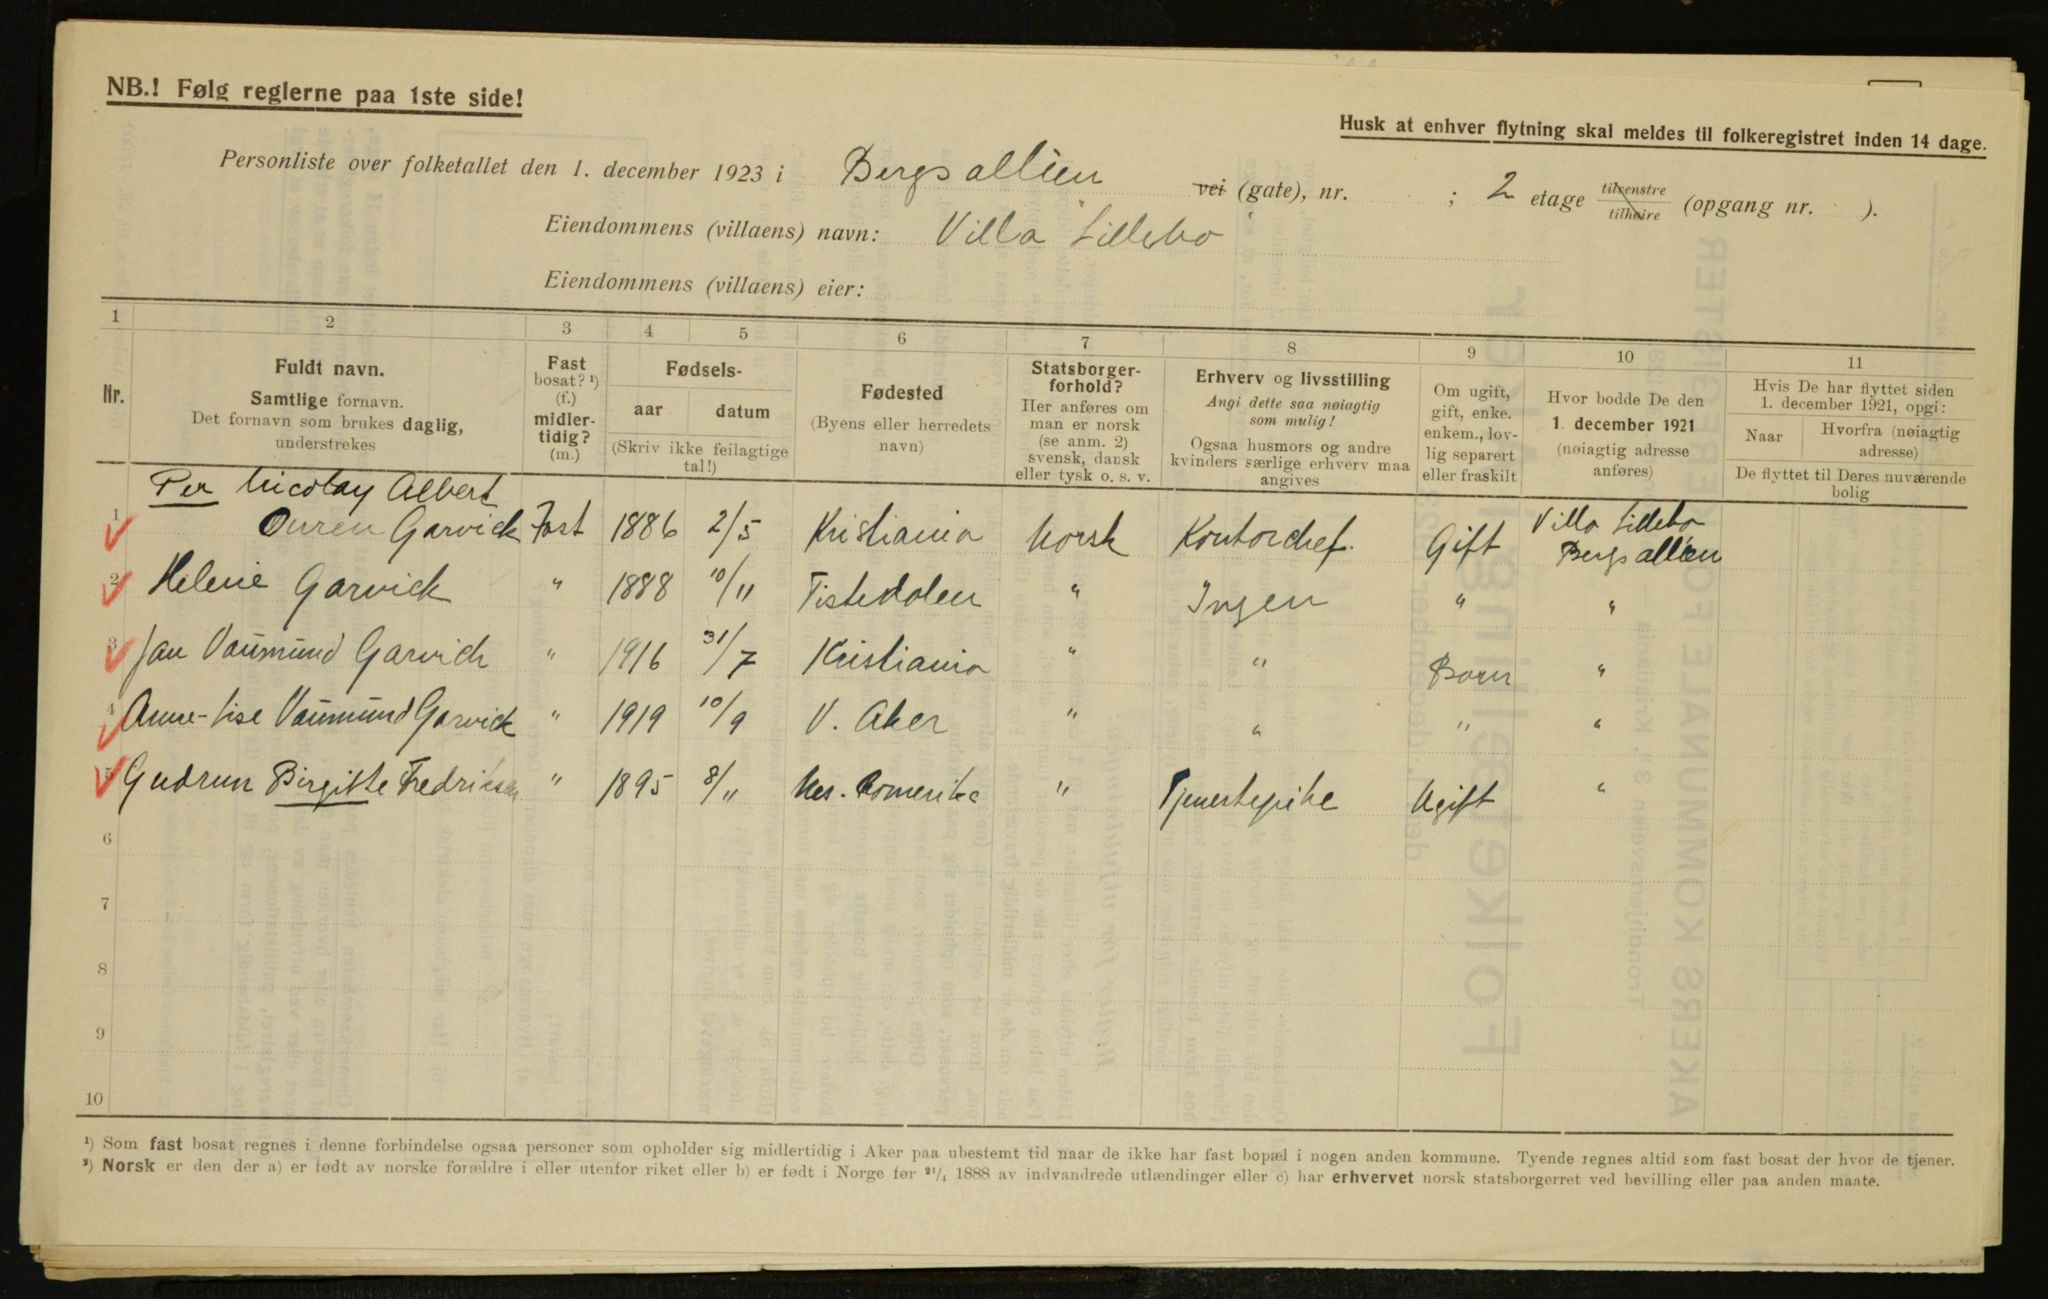 NB.! Følg reglerne paa 1ste side!
Husk at enhver flytning skal meldes til folkeregistret inden 14 dage.
Personliste over folketallet den 1. december 1923 i Bergsalléen vei (gate), nr. ; 2 etage tilvenstre tilhøire (opgang nr. ).
Eiendommens (villaens) navn: Villa Lillebo
Eiendommens (villaens) eier:
1 2 3 4 5 6 7 8 9 10 11
Nr.
Fuldt navn.
Samtlige fornavn.
Det fornavn som brukes daglig,
understrekes
Fast
bosat? ¹)
(f.)
midler-
tidig?
(m.)
Fødsels-
aar datum
(Skriv ikke feilagtige
tal!)
Fødested
(Byens eller herredets
navn)
Statsborger-
forhold?
Her anføres om
man er norsk
(se anm. 2)
svensk, dansk
eller tysk o. s. v.
Erhverv og livsstilling
Angi dette saa nøiagtig
som mulig!
Ogsaa husmors og andre
kvinders særlige erhverv maa
angives
Om ugift,
gift, enke.
enkem., lov-
lig separert
eller fraskilt
Hvor bodde De den
1. december 1921
(nøiagtig adresse
anføres)
Hvis De har flyttet siden
1. december 1921, opgi:
Naar
Hvorfra (nøiagtig
adresse)
De flyttet til Deres nuværende
bolig
Per Nicolay Albert
1 Garvick Fast 1886 2/5 Kristiania Norsk Kontorchef. Gift Villa Lillebo
Bergsalléen
2 Helene Garvick " 1888 10/11 Tistedalen " Ingen " "
3 Jan Garvick " 1916 31/7 Kristiania " " Barn "
4 Anne-Lise Garvick " 1919 10/9 V. Aker " " " "
5 Gudrun Birgitte Fredriksen " 1895 8/11 Nes. Romerike " Tjenestepike Ugift "
6
7
8
9
10
¹) Som fast bosat regnes i denne forbindelse ogsaa personer som opholder sig midlertidig i Aker paa ubestemt tid naar de ikke har fast bopæl i nogen anden kommune. Tyende regnes altid som fast bosat der hvor de tjener.
²) Norsk er den der a) er født av norske forældre i eller utenfor riket eller b) er født i Norge før ²¹/₄ 1888 av indvandrede utlændinger eller c) har erhvervet norsk statsborgerret ved bevilling eller paa anden maate.